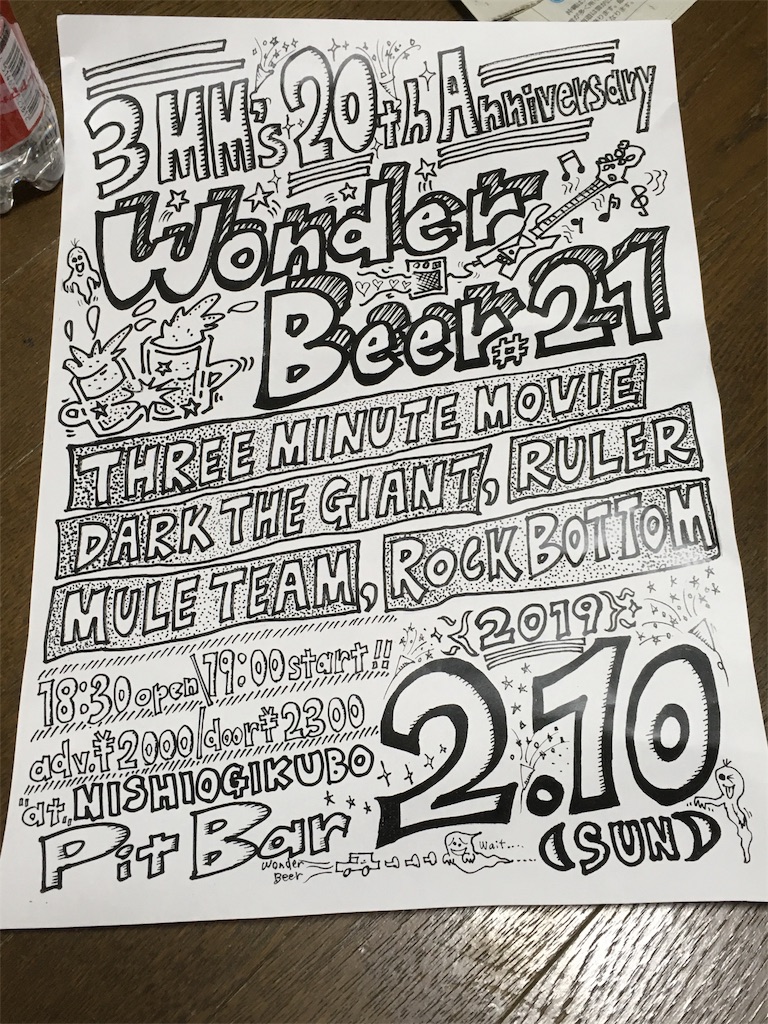 3MM's 20th Anniversary
Wonder
Beer #21
THREE MINUTE MOVIE
DARK THE GIANT, RULER
MULE TEAM, ROCK BOTTOM
{2019}
18:30 open\19:00 start!!
adv.¥2000/door¥2300
"at" NISHIOGIKUBO
Pit Bar
2.10
(SUN)
Wonder
Beer
Wait....